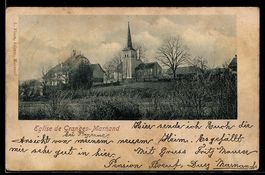 Eglise de Granges-Marnand
Hier sende ich Euch die
Ansicht von meinem neuen Heim. Es gefällt
mir sehr gut in hier. Mit Gruss Fritz Meier
Pension Boeuf,
Marnand